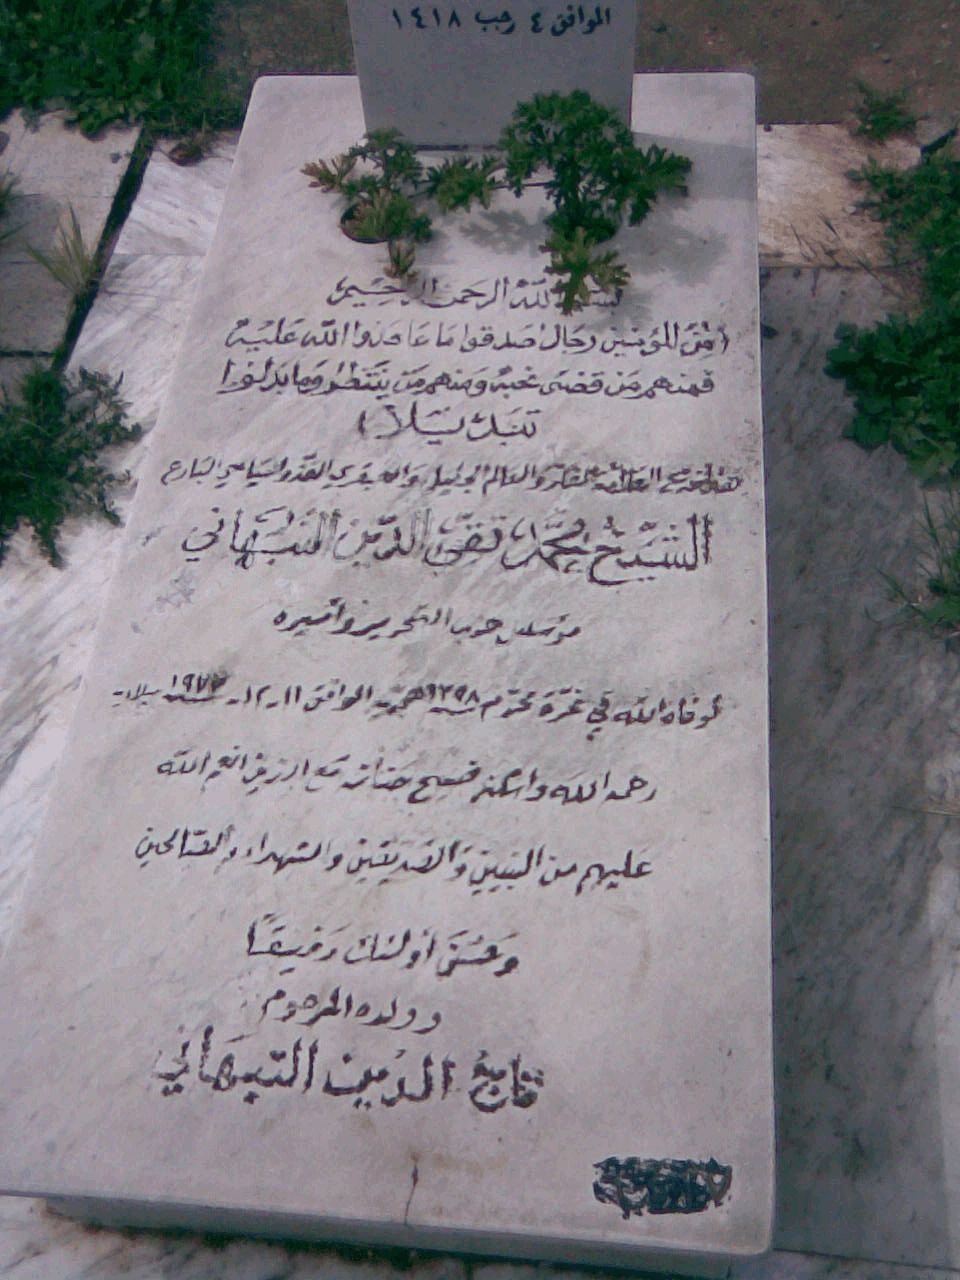 الموافق ٤ رجب ١٤١٨
بسم الله الرحمن الرحيم
(مِنَ المؤمنين رجال صدقوا مَا عَاهدوا الله عَليْهْ
فمنهم مَن قضىَ نحبهُ وَمنهم مَن يَنتَظرُ وَما بَدلوُا
تَبْديْلاً)
وَالعالم الجليل السّياسي البارع
الشيّخ محمّد تقيّ الدّين النّبهَاني
مؤسس حزب التحرير وأميره
توفاه الله في غرّة محرّم ١٣٩٨ هجرية الموافق ١١-١٢-١٩٧٧ ميلادية
رحمه الله واسكنه فسيح جناته مَع الذين انعم الله
عَليهم من النبيين وَالصّديقين والشهداء والصّالحين
وَحَسُنَ أولئك رَفيقاً
وولده المرحوم
تاج الدين النبهاني